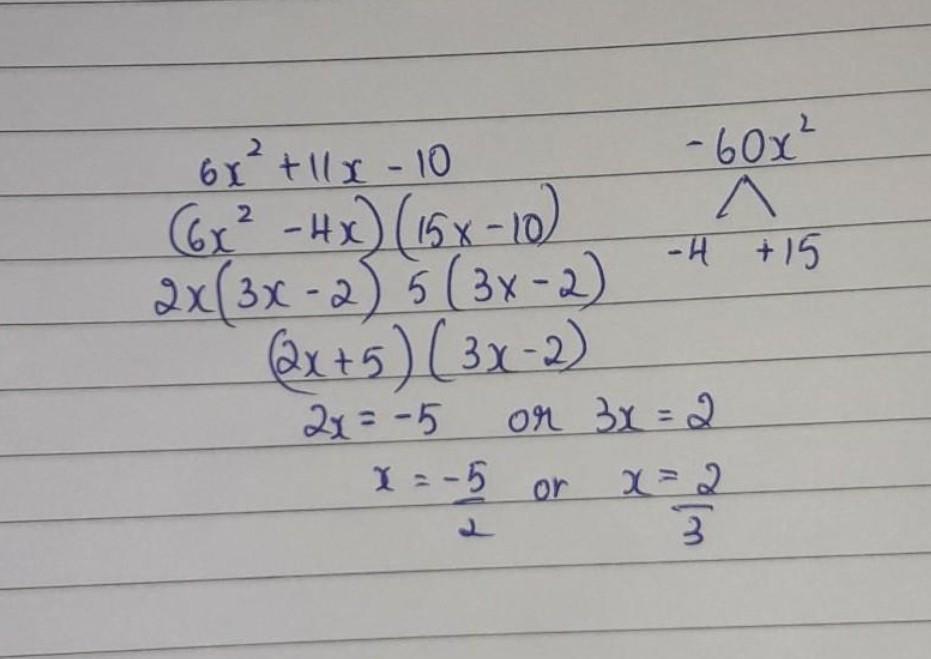 6x² + 11x - 10
-60x²
(6x² - 4x)(15x - 10)
-4 +15
2x(3x - 2) 5(3x - 2)
(2x + 5)(3x - 2)
2x = -5 or 3x = 2
x = -5/2 or x = 2/3